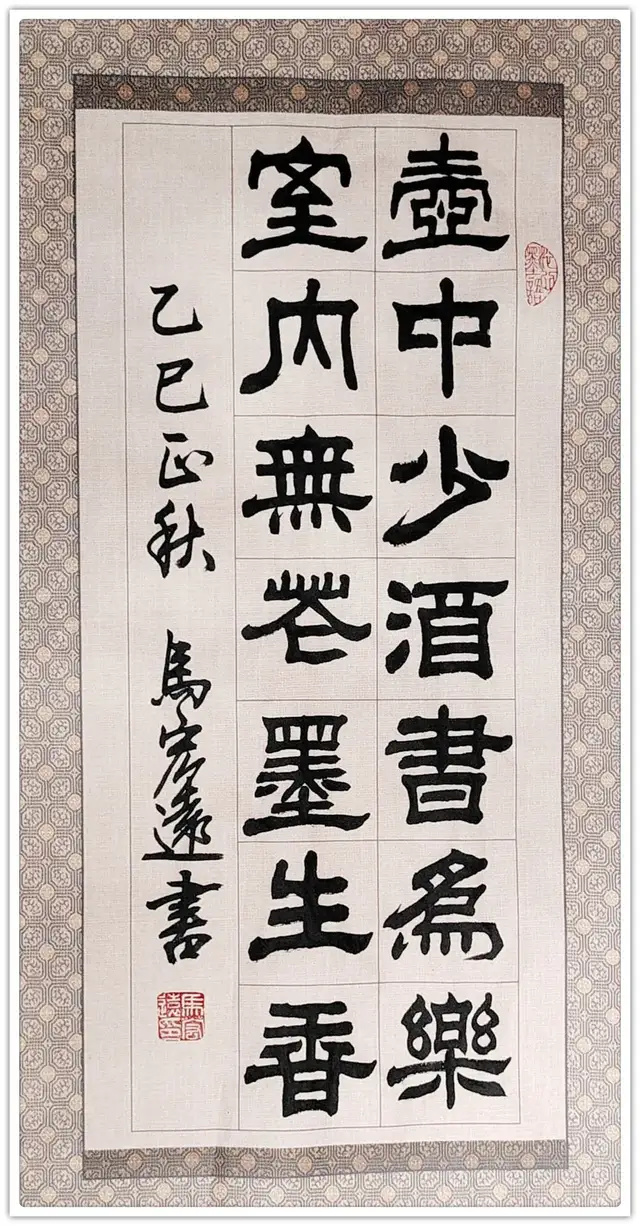 壺中少酒書爲樂
室内無花墨生香
乙巳正秋 馬宏遠書
馬宏遠印